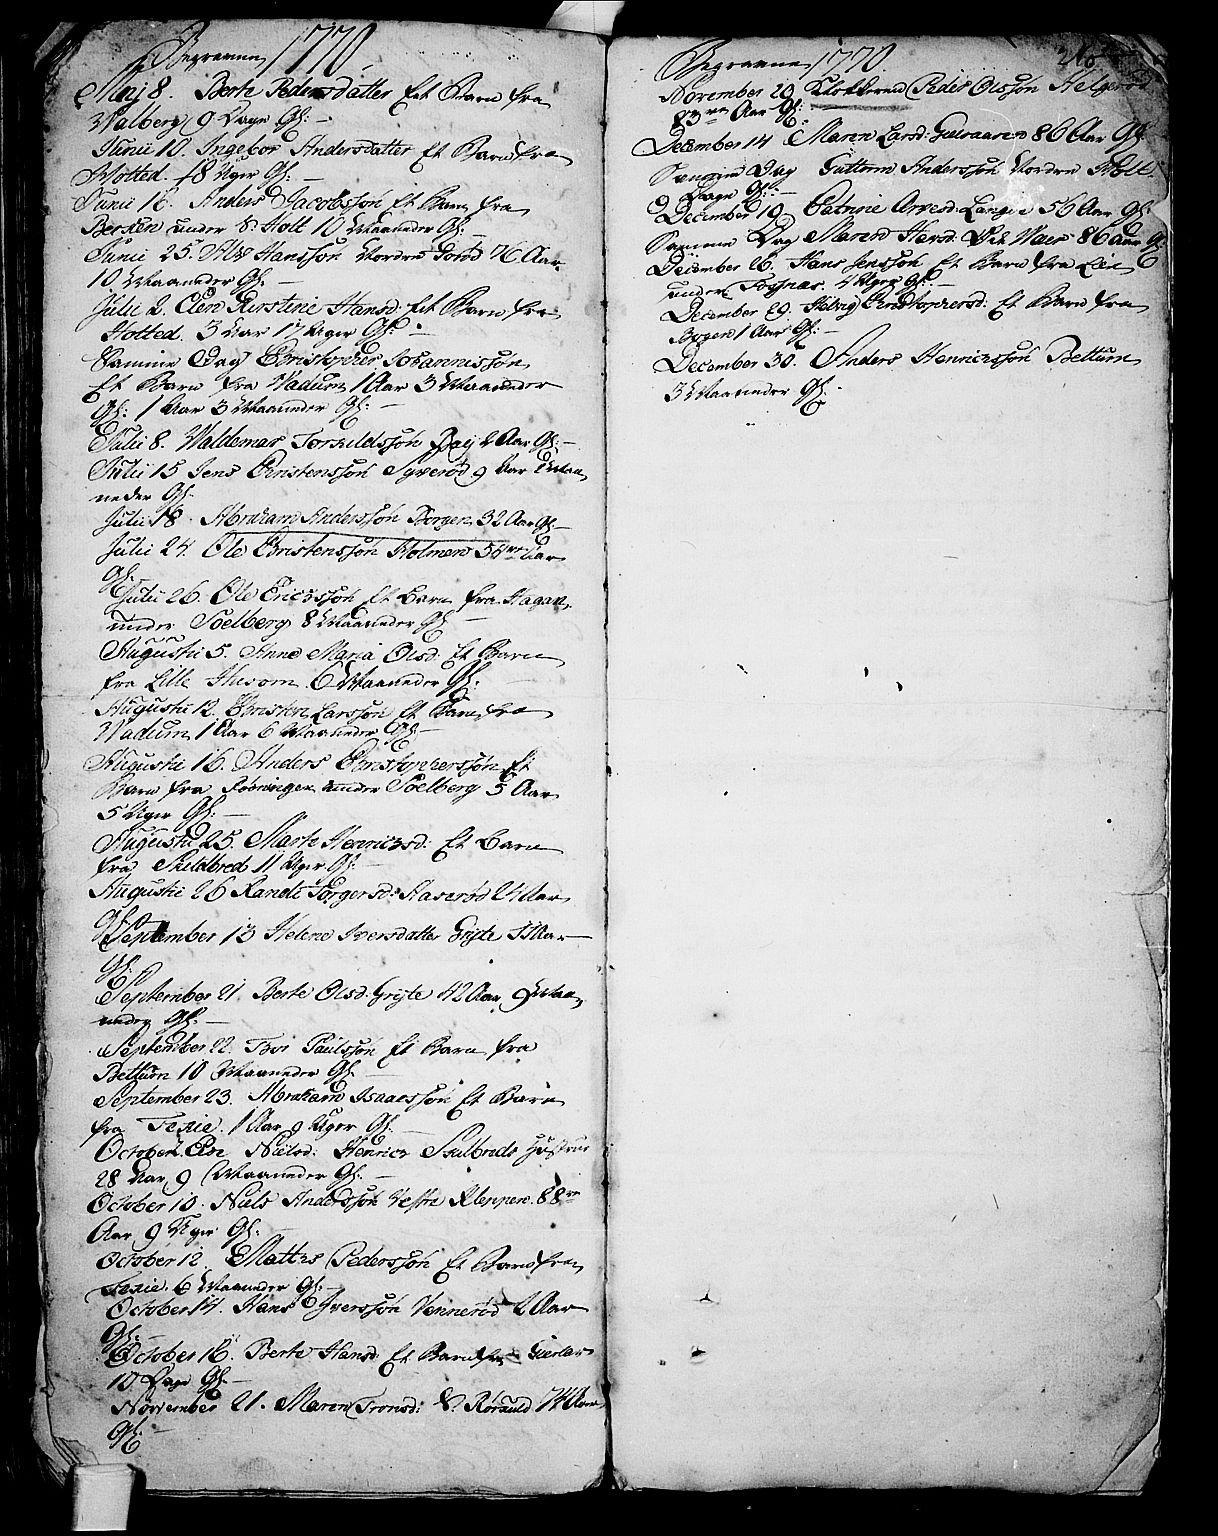 Begravne 1770
Maj 8. Berte Pedersdatter Eet Barn fra
Walberg 9 Dage Gl: –
Junii 10. Ingebor Andersdatter Et Barn fra
Hotted. 18 Uger Gl: –
Junii 16. Anders Jacobssøn Et Barn fra
under S: Holt 10 Maaneder Gl: –
Junii 25. Hanssøn Nordre 76 Aar
10 Maaneder Gl: –
Julii 2. Elen Kirstine Hansd: Et Barn fra
Hotted. 3 Aar 17 Uger Gl: –
Samme Dag Christopher Johannissøn
Et Barn fra Vadum 1 Aar 3 Maaneder
Gl: 1 Aar 3 Maaneder Gl: –
Julii 8. Waldemar Torkildssøn 2 Aar Gl: –
Julii 15 Jens Christenssøn Syverød 9 Aar Maa
neder Gl:
Julii 18. Abraham Anderssøn Borgen 32 Aar Gl: –
Julii 24. Ole Christenssøn Holmen Aar
Gl:
Julii 26. Ole Ericssøn Et Barn fra Hagan
under Soelberg 8 Maaneder Gl –
Augusti 5. Anne Maria Olsd. Et Barn
fra Lille Husom 6 Maaneder Gl:
Augusti 12. Christen Larssøn Et Barn fra
Wadum 1 Aar 6 Maaneder Gl –
Augusti 16. Anders Christopherssøn Et
Barn fra under Soelberg 5 Aar
5 Uger Gl: –
Augusti 25. Marte Henricsd: Et Barn
fra Skildbred 11 Uger Gl: –
Augusti 26 Randi Torgersd: Haserød 24 Aar
Gl
September 13 Helene Iversdatter Griste Aar
Gl:
September 21. Berte Olsd. Griste 42 Aar 9 Maa
neder Gl: –
September 22. Troi Paulssøn Et Barn fra
Bettum 10 Maaneder Gl: –
September 23. Abraham Isaacssøn Et Barn
fra Fexie. 1 Aar 9 Uger Gl: –
October 7. Else Nielsd: Henrics Skilbreds Hustrue
28 Aar 9 Maaneder Gl: –
October 10. Niels Anderssøn Vestre Kleppen. 88
Aar 9 Uger Gl: –
October 12 Mattis Pederssøn Et Barn fra
Fexie. 6 Maaneder Gl: –
October 14. Hans Iverssøn Vennerød 2 Aar
Gl: –
October 16. Berte Hansd: Et Barn fra
10 Dage Gl –
November 21. Maren Tronsd: S: Røraeld 74 Aar
Gl: –
Begravne 1770
November 20 Klokkeren Peder Olssøn Helgerød
83 Aar Gl: –
December 14 Maren Larsd: 86 Aar Gl
Samme Dag Guttorm Anderssøn Nordre Holt
9 Dage Gl: –
December 19 Catrine Arvesd: Langøe 56 Aar Gl:
Samme Dag Maren Hansd. 86 Aar Gl
December 26. Hans Jenssøn Et Barn fra Lien
under Fossnæs. 4 Uger Gl: –
December 29. Helvig Christophersd: Et Barn fra
Borgen 1 Aar Gl: –
December 30. Anders Henricssøn Bettum
3 Maaneder Gl: –